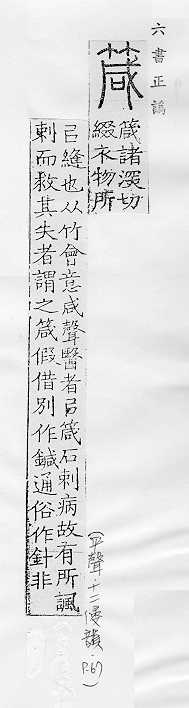 六書正譌
箴
箴諸㴱切
綴衣物所
㠯縫也从竹會意咸聲醫者㠯箴石刺病故有所諷
刺而救其失者謂之箴假借別作鍼通俗作針非
(平聲·十二侵韻·P.67)